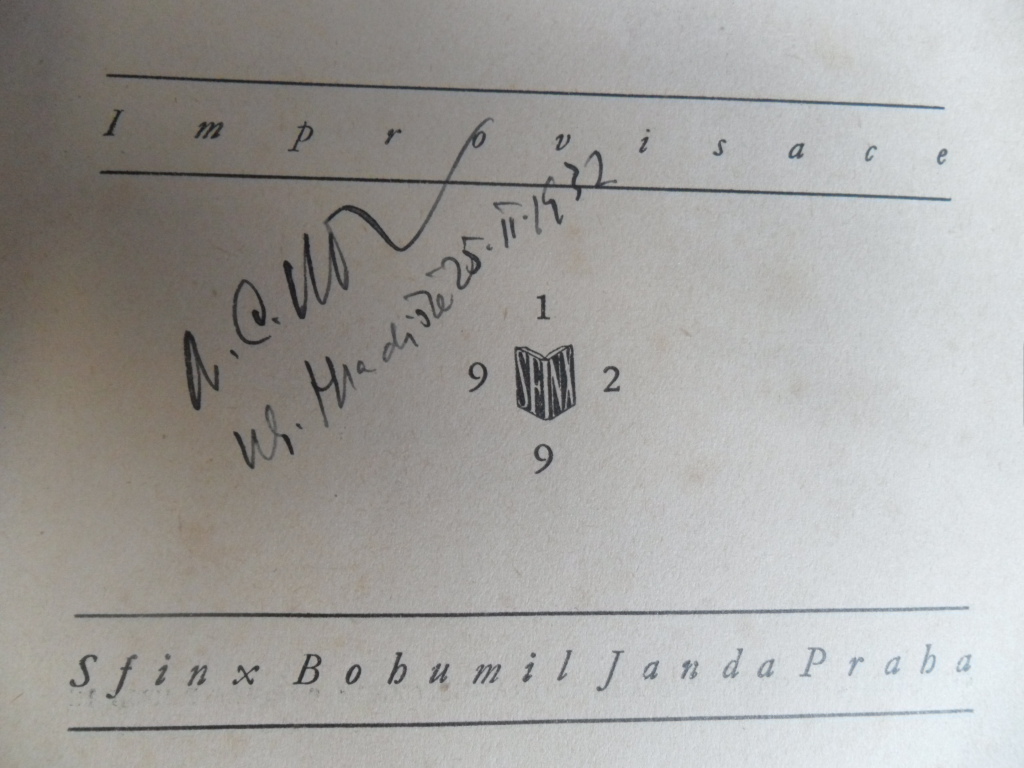 Improvisace
Uh. Hradiště 25. II. 1932
1
9 SFINX 2
9
Sfinx Bohumil Janda Praha